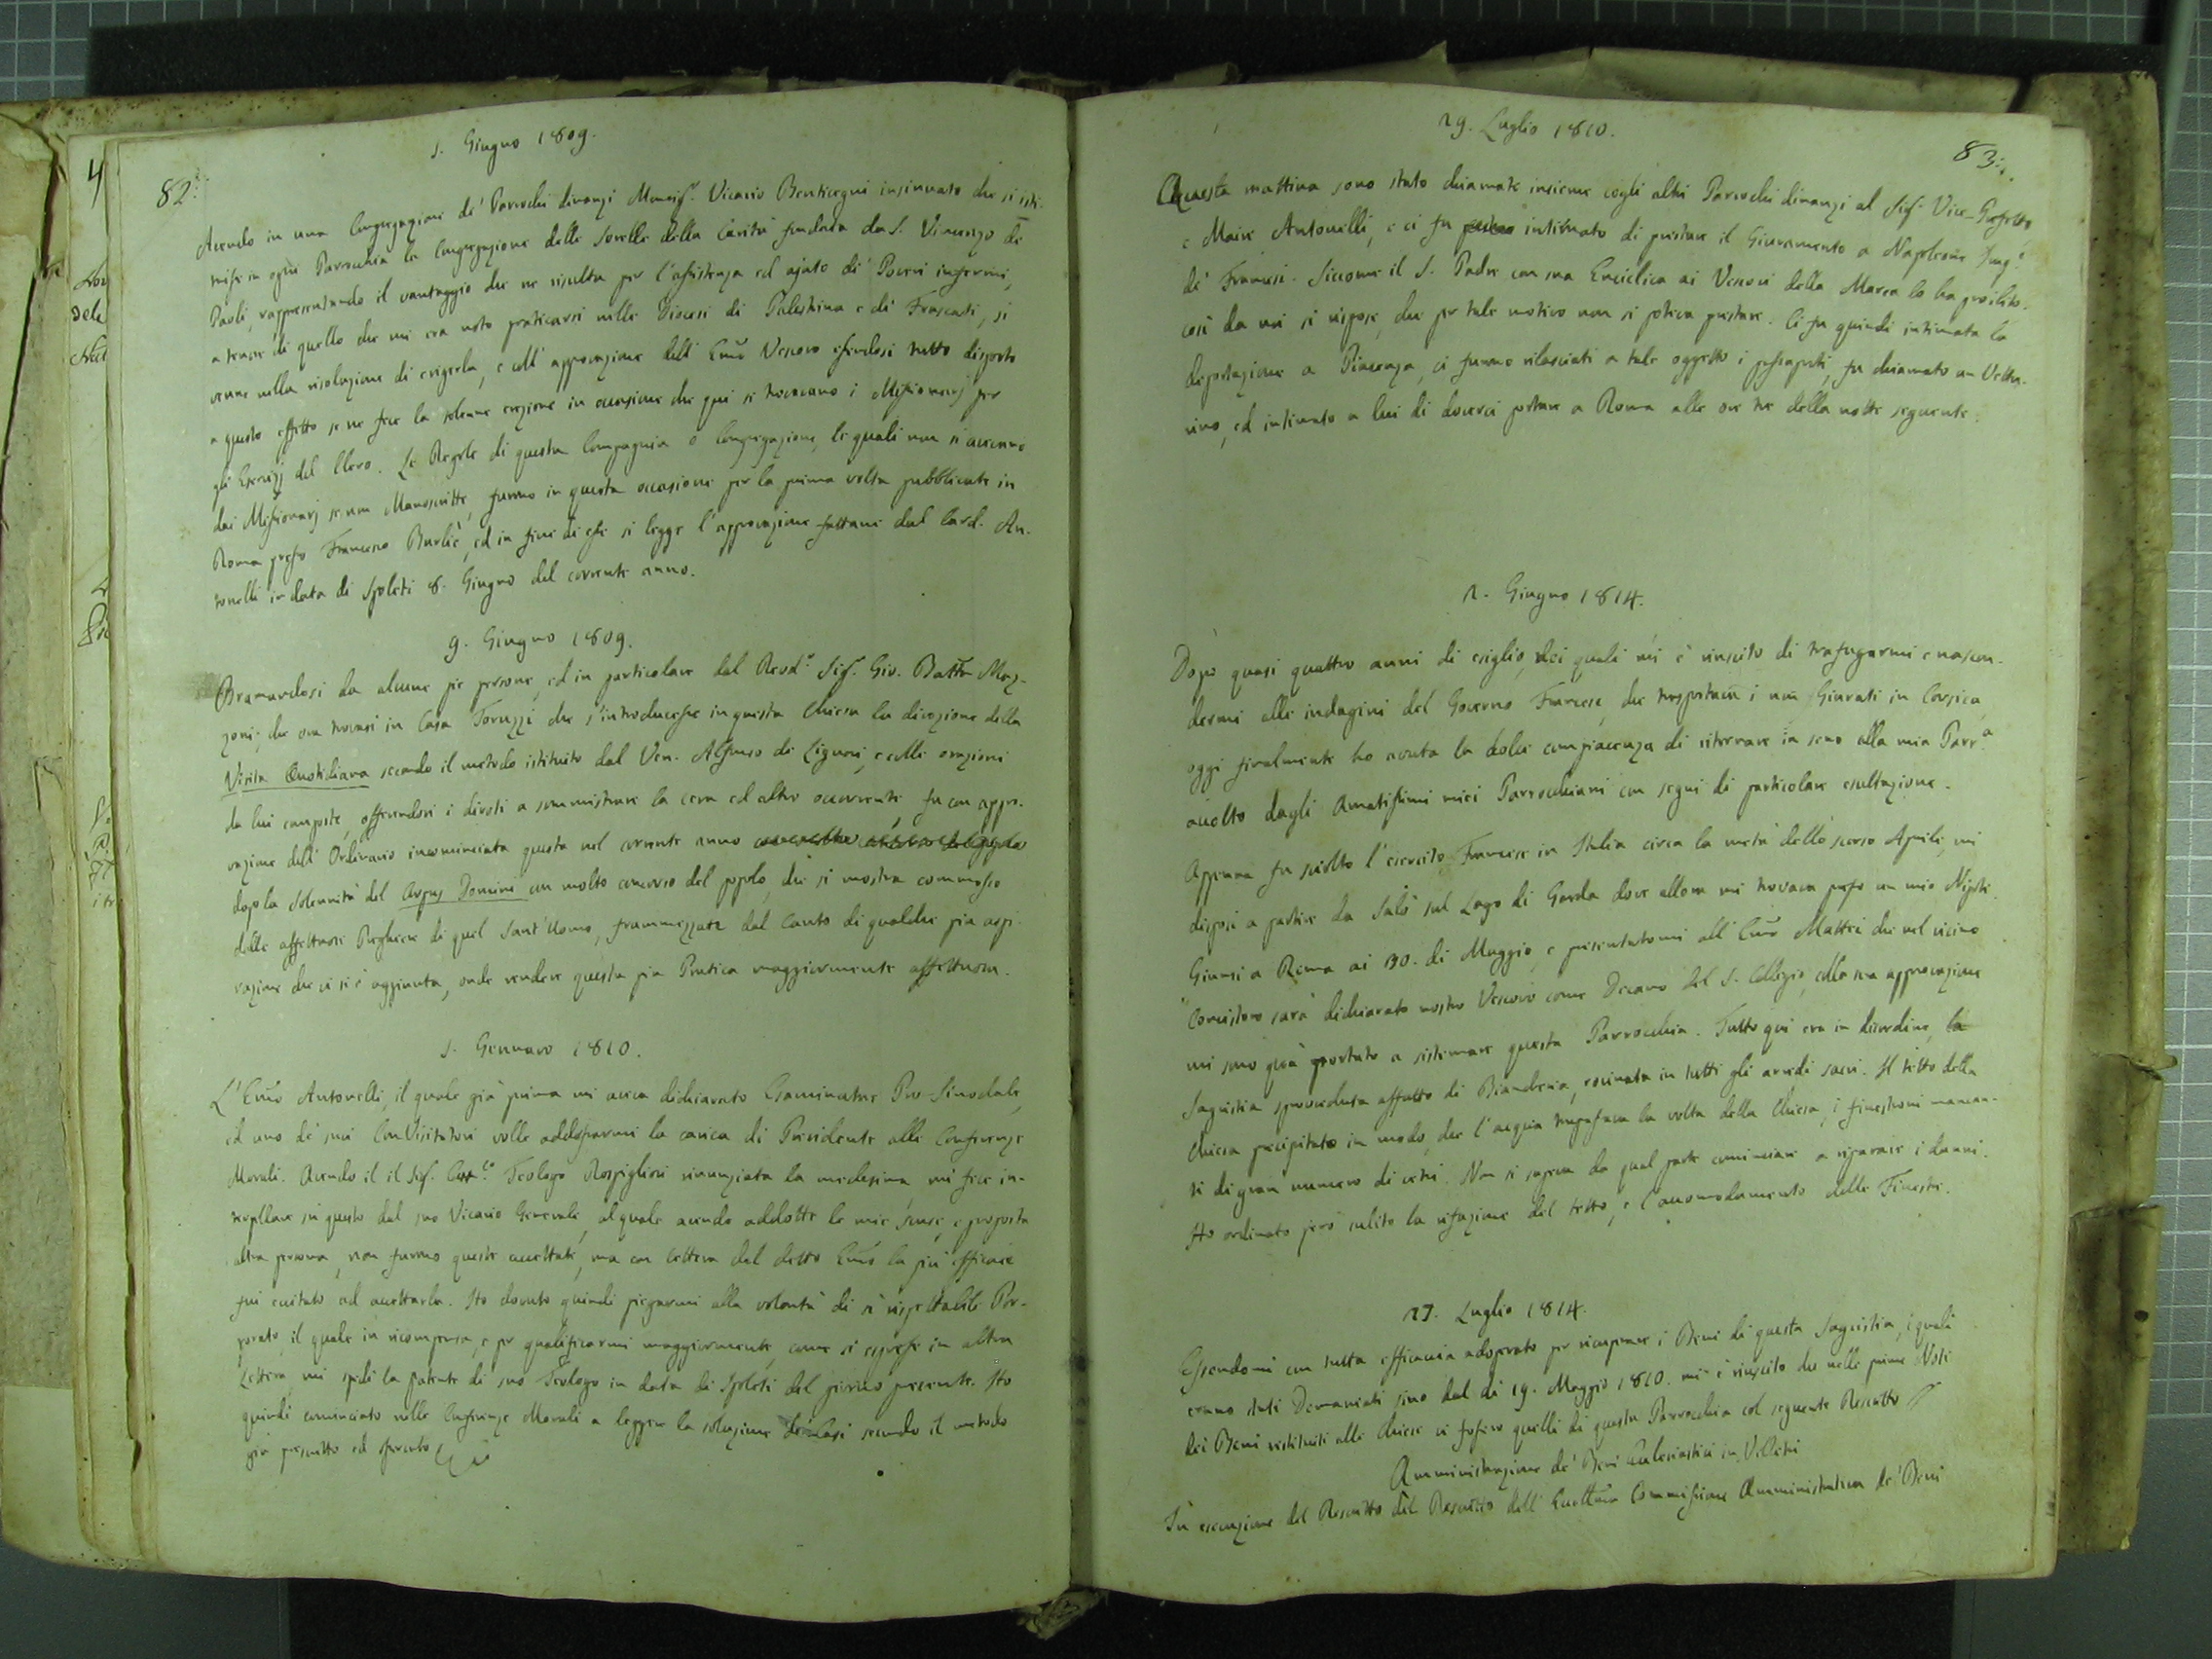 82.
1. Giugno 1809.
Avendo in una Congregazione de' Parrochi dinanzi Monsig.r Vicario Bentivegni insinuato che si isti-
tuisse in ogni Parrocchia la Congregazione delle Sorelle della Carità fondata da S. Vincenzo de
Paoli, rappresentando il vantaggio che ne risulta per l'assistenza ed ajuto di' Poveri infermi,
a tenore di quello che mi era noto praticarsi nelle Diocesi di Palestrina e di Frascati, si
venne nella risoluzione di erigerla, e coll' approvazione dell' Emo Vescovo essendosi tutto disposto
a questo effetto se ne fece la solenne erezione in occasione che qui si trovavano i Missionarj per
gli Esercizj del Clero. Le Regole di questa Compagnia o Congregazione, le quali non si avevano
dai Missionarj se non Manoscritte, furono in questa occasione per la prima volta pubblicate in
Roma presso Francesco Burliè, ed in fine di esse si legge l'approvazione fattane dal Card. An-
tonelli in data di Spoleti 8. Giugno del corrente anno.
9. Giugno 1809.
Bramandosi da alcune pie persone, ed in particolare dal Revd.o Sig.r Gio. Batta Maz-
zoni, che ora trovasi in Casa Toruzzi che s'introducesse in questa Chiesa la divozione della
Visita Quotidiana secondo il metodo istituito dal Ven. Alfonso de Liguori, e colle orazioni
da lui composte, offerendosi i divoti a somministrare la cera ed altro occorrente, fu con appro-
vazione dell' Ordinario incominciata questa nel corrente anno
dopo la solennità del Corpus Domini con molto concorso del popolo, che si mostra commosso
delle affettuose Preghiere di quel Sant' Uomo, frammezzate dal Canto di qualche pia aspi-
razione che vi si è aggiunta, onde rendere questa pia Pratica maggiormente affettuosa.
1. Gennaro 1810.
L'Emo Antonelli, il quale già prima mi aveva dichiarato Esaminatore Pro-Sinodale,
ed uno de' suoi ConVisitatori volle addossarmi la carica di Presidente alle Conferenze
Morali. Avendo il il Sig.r Can.co Teologo Rospigliosi rinunziata la medesima, mi fece in-
terpellare su questo dal suo Vicario Generale, al quale avendo addotte le mie scuse, e proposta
altra persona, non furono queste accettate, ma con lettera del detto Emo la più efficace
fui eccitato ad accettarla. Ho dovuto quindi piegarmi alla volontà di sì rispettabile Por-
porato, il quale in ricompensa, e per qualificarmi maggiormente, come si espresse in altra
Lettera, mi spedì la patente di suo Teologo in data di Spoleti del primo presente. Ho
quindi cominciato nelle Conferenze Morali a leggere la soluzione de' Casi secondo il metodo
già prescritto ed
83.
29. Luglio 1810.
Questa mattina sono stato chiamato insieme cogli altri Parrochi dinanzi al Sig.r Vice-Prefetto
e Maire Antonelli, e ci fu intimato di prestare il Giuramento a Napoleone Imp.e
de' Francesi. Siccome il S. Padre con sua Enciclica ai Vescovi della Marca lo ha proibito,
così da noi si rispose, che per tale motivo non si poteva prestare. Ci fu quindi intimata la
deportazione a Piacenza, ci furono rilasciati a tale oggetto i passaporti, fu chiamato un Vettu-
rino, ed intimato a lui di doverci portare a Roma alle ore tre della notte seguente.
2. Giugno 1814.
Dopo quasi quattro anni di esiglio, nei quali mi è riuscito di trafugarmi e nascon-
dermi alle indagini del Governo Francese, che trasportava i non Giurati in Corsica,
oggi finalmente ho avuta la dolce compiacenza di ritornare in seno alla mia Parr.a
accolto dagli Amatissimi miei Parrocchiani con segni di particolare esultazione.
Appena fu sciolto l'esercito Francese in Italia circa la metà dello scorso Aprile, mi
disposi a partire da Salò sul Lago di Garda dove allora mi trovava presso un mio Nipote.
Giunsi a Roma ai 30. di Maggio, e presentatomi all' Emo Mattei che nel vicino
Concistoro sarà dichiarato nostro Vescovo come Decano del S. Collegio, colla sua approvazione
mi sono quà portato a sistemare questa Parrocchia. Tutto qui era in disordine, la
Sagristia sprovveduta affatto di Biancheria, rovinata in tutti gli arredi sacri. Il tetto della
Chiesa precipitato in modo, che l'acqua trapassava la volta della Chiesa, i finestroni mancan-
ti di gran numero di vetri. Non si sapeva da qual parte cominciare a riparare i danni.
Ho ordinato però subito la rifazione del tetto, e l'accomodamento delle Finestre.
27. Luglio 1814.
Essendomi con tutta efficacia adoperato per ricuperare i Beni di questa Sagristia, i quali
erano stati Demaniati sino dal dì 19. Maggio 1810. mi è riuscito che nelle prime Note
dei Beni restituiti alle Chiese vi fossero quelli di questa Parrocchia col seguente Rescritto
Amministrazione de' Beni Ecclesiastici in Velletri
In esecuzione del Rescritto del Rescritto dell' Eccellma Commissione Amministrativa de' Beni